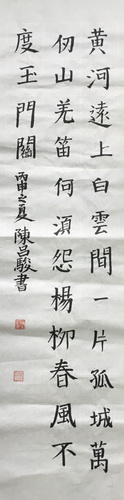 黃河遠上白雲間一片孤城萬
仞山羌笛何湏怨楊柳春風不
度玉門關 丙申之夏陳昌駿書